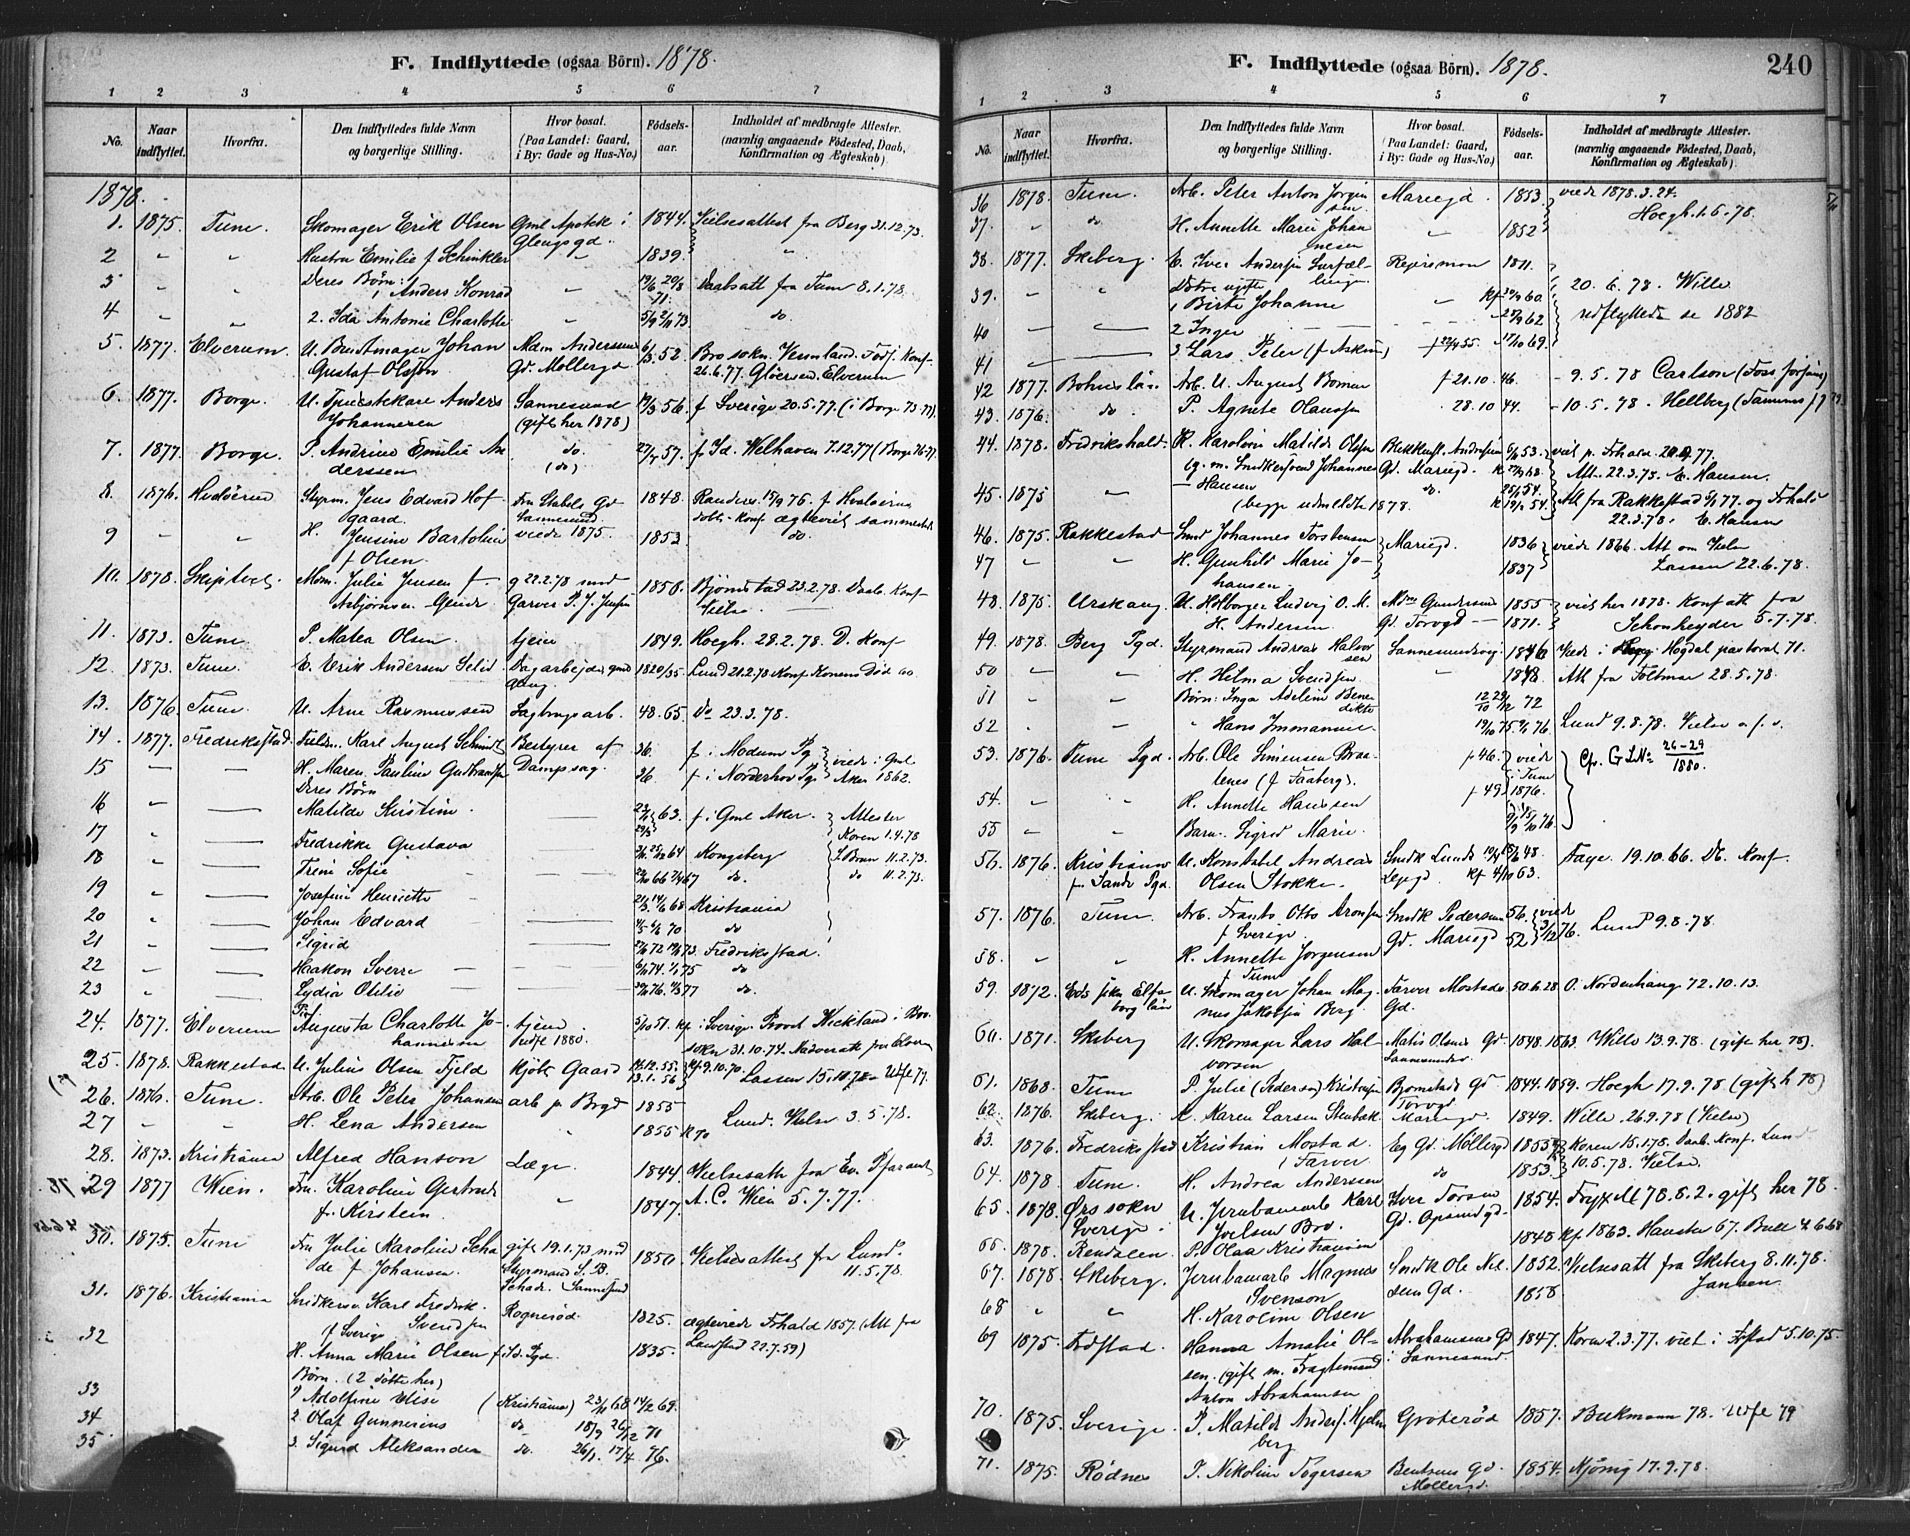 F. Indflyttede (ogsaa Börn). 1878.
1 2 3 4 5 6 7
No. Naar indflyttet. Hvorfra. Den Indflyttedes fulde Navn og borgerlige Stilling. Hvor bosat. (Paa Landet: Gaard, i By: Gade og Hus-No.) Födsels-aar. Indholdet af medbragte Attester. (navnlig angaaende Födested, Daab, Konfirmation og Ægteskab)
1878.
1. 1875. Tune. Skomager Erik Olsen Gml Apotek i Glengsgd. 1844. Vielsesattest fra Berg 31.12.73.
2 " " Hustru Emilie f Schinkler " 1839. "
3 " " Deres Børn: 1 Anders Konrad " 71. Daabsatt fra Tune 8.1.78.
4 " " 2. Ida Antonie Charlotte " 73 do.
5. 1877. Elverum. Johan Gustaf Olsson Mdm Anderssen Gd. Møllergd 52. Bro sokn. Vermland. Født. Konf. 26.6.77 Gløersen. Elverum
6. 1877. Borge. Anders Johannesen Sannesund (gift her 1878) 56. f Sverige 20.5.77. (i Borge 73-77)
7. 1877. Borge. P. Andrine Emilie Anderssen do (do) 57. f. Id. Welhaven 7.12.77 (Borge 76-77)
8. 1876. Hvaløerne Styrm. Jens Edvard Hofgaard. Fru Stabels Gd Sannesund 1848.
9 " " H. Jensine Bartoline f Olsen. viede 1875. 1853 do.
10. 1878. Skiptvet. Mdm. Julie Jensen f. Asbjørnsen g 22.2.78 med Garver P. J. Jensen 1858. Bjørnstad 23.2.78. Daab. Konf Vielse.
11. 1873. Tune. P. Matea Olsen. tjener 1849. Hoegh. 28.2.78. D. Konf
12. 1873. Tune. E. Erik Andersen 1820/35
13. 1876. Tune. U. Arne Rasmussen Sagbrugsarb. 48.65. Do 23.3.78.
14. 1877. Fredrikstad. Karl August Schmidt Bestyrer af Dampsag. 36. f i Modum Pg viede i Gml Aker 1862.
15 " H. Maren Pauline Gulbransen 26. f i Norderhov Pg
Deres Børn
16 " Matilde Kirstine. 63. f. i Gml Aker. Attester
17 " Fredrikke Gustava 64 Kongsberg Koren 1.4.78
18 " Trine Sofie do. 11.2.73.
19 " Josefine Henriette 68 Kristiania do 11.2.73.
20 " Johan Edvard 70 do
21 " Sigrid 72 73. Fredrikstad.
22 " Haakon Sverre 74. 75 do
23 " Lydia Otilie 76. 77 do.
24. 1877. Elverum Pige Augusta Charlotte Johannesen tjener 1880. 51. kf. i Sverige. Provst Kicklund i Bro sokn 31.10.74. Nadveratt fra Elverum
25 1878. Rakkestad U. Julius Olsen Fjeld kjøbt Gaard 14.12.55. 13.1.56 kf. 9.10.70. Lassen 15.10.78.
26. 1876. Tune. Arb. Ole Peter Johansen arb p Brgd 1855
27 " " H. Lena Andersen " 1855 Lund. Vielse 3.5.78.
28. 1873. Kristiania Alfred Hanson Læge. 1844 Vielsesatt fra Ev. Pfarramt
29 1877 Wien. Fru Karoline Gertrude f. Kirstein. " 1847. A.C. Wien 5.7.77.
30. 1875. Tune Fru Julie Karoline Schade f Johansen. gift 19.1.73 med Styrmand S. B. Schade. Sannesund 1850 Vielsesattest fra Lund. 11.5.78.
31. 1876. Kristiania Snidkersv. Karl Fredrik Svendsen f Sverige Rognerød. 1825. ægteviede Frhald 1857. (Att fra Landstad 22.7.59)
32 H. Anna Marie Olsen f. Id. Pgd. 1835.
Børn. (2 døtte her)
33 1 Adolfine Elise (Kristiania) 68 69.
34 2. Olaf Gunnerius do 71
35 3. Sigurd Aleksander do. 76.
F. Indflyttede (ogsaa Börn). 1878. 240
1 2 3 4 5 6 7
No. Naar indflyttet. Hvorfra. Den Indflyttedes fulde Navn og borgerlige Stilling. Hvor bosat. (Paa Landet: Gaard, i By: Gade og Hus-No.) Födsels-aar. Indholdet af medbragte Attester. (navnlig angaaende Födested, Daab, Konfirmation og Ægteskab)
36 1878. Tune. Arb. Peter Anton Jørgensen Mariegd 1853. viede 1878.3.24.
37. " do H. Annette Marie Johannesen " 1852 Hoegh. 1.6.78.
38. 1877. Skeberg. E. Iver Andersen 1811. 20.6.78. Wille
39. " " Døtre ugifte 1 Birte Johanne " 60. udflyttede se 1882
40 " 2 Inger 62
41 " 3 Lars Peter 69.
42 1877. Bohuslän. Arb. U. August Boman f 21.10.46. - 9.5.78 Carlson
43. 1876. do. P. Agnete Olaussen 28.10.44. - 10.5.78. Hellberg
44. 1878. Fredrikshald. H. Karoline Matilde Olsen g. m. Snedkersvend Johannes Hansen Gd. Mariegd. 53. viet p. Frhald 77. Att. 22.3.78. E. Hansen
45. 1875 " (begge udmeldte 1878. do. 54. Att fra Rakkestad 77. og Frhald 22.3.78. E. Hansen
46. 1875. Rakkestad Johannes Torstensen Mariegd. 1836 viede 1866. Att om Vielse
47 " " H. Gunhild Marie Johansen. 1837 Lassen 22.6.78.
48. 1875. Urskaug U. Holborger Ludvig O. M. H. Andersen Mdm Gundersens Gd. Torvgd 1855 1871. viet her 1878. Konf att fra Schønheyder 5.7.78.
49. 1878. Berg Pgd. Styrmand Andreas Halvorsen Sannesundsvig 1846 Viede i Høgdal pastorat 71.
50 " " H. Helma Svendsen 1848. Att fra Foltmar 28.5.78.
51 " " Børn: Inga Adeline Benedikte 72
52. " " Hans Immanuel 75 76. Lund 9.8.78. Vielse
53. 1876. Tune Pgd. Arb. Ole Simensen Braatenes (f Faaberg). f 46. viede i Tune 1876. Cfr. G L.No 26-29 / 1880.
54. " " H. Annette Hansen f 49
55 " " Barn. Sigrid Marie. 76.
56. 1876. Kristiania f. Sande Pgd. U. Konstabel Andreas Olsen Stokke. 48. kf 63. Faye. 19.10.66. Db. Konf.
57. 1876. Tune. Arb. Frants Otto Aronsen f Sverige. Snedk Pedersens Gd. Mariegd 56. viede 76. Lund 9.8.78.
58. " " H. Annette Jørgensen f Tune 52
59. 1872. Eds sokn Elfsborg län U. Skomager Johan Magnus Jakobsen Berg. Farver Mostads Gd. 50.6.28 O. Nordenhaug. 72.10.13.
60. 1871. Skeberg U. Skomager Lars Halvorsen Matis Olsens Gd Sannesundsv. 1848. 1863. Wille 13.9.78. (gift her 78).
61. 1868. Tune P. Julie (Pedersen) Kristensen Bjørnstads Gd Torvgd 1844. 1859. Hoegh 17.9.78 (gift h 78)
62. 1876. Skeberg. Karen Larsen Stenbæk Mariegd. 1849. Wille. 26.9.78 (Vielse)
63. 1876. Fredrikstad Kristian Mostad. Farver. Eg Gd. Møllergd 1855 Koren 15.1.78. Daab. Konf. Lund
64. 1878. Tune. H. Andrea Anderssen do 1853. 10.5.78. Vielse.
65. 1878. Ørs sokn Sverige. U. Jernbanearb Karl Joelsen Bro. Iver Torsens Gd. Opsundgd. 1854. Fryxell 78.8.2. gift her 78.
66 1878. Rendalen. P. Olaa Kristiansen 1848 kf. 1863. Hanstee 67. Bull 4.6.68
67. 1878. Skeberg. Jernbanearb Magnus Svenson Snedk Ole Nilsens Gd. 1852. Vielsesatt fra Skeberg 8.11.78.
68 " " H. Karoline Olsen 1858 Jansen
69 1875. Frdstad. Hanna Amalie Olsen. (gift m. Fragtemand Anton Abrahamsen Abrahamsens Gd i Sannesund. 1847. Koren 2.3.77. viet i Frstad 5.10.75.
70. 1875. Sverige. P. Matilde Anders. Hjelmberg Grøterød 1857. Bekmann 78. Wfe 79
71. 1875. Rødnes P. Nikoline Togersen Bentsens Gd. Møllergd. 1854. Njøsig 17.9.78.